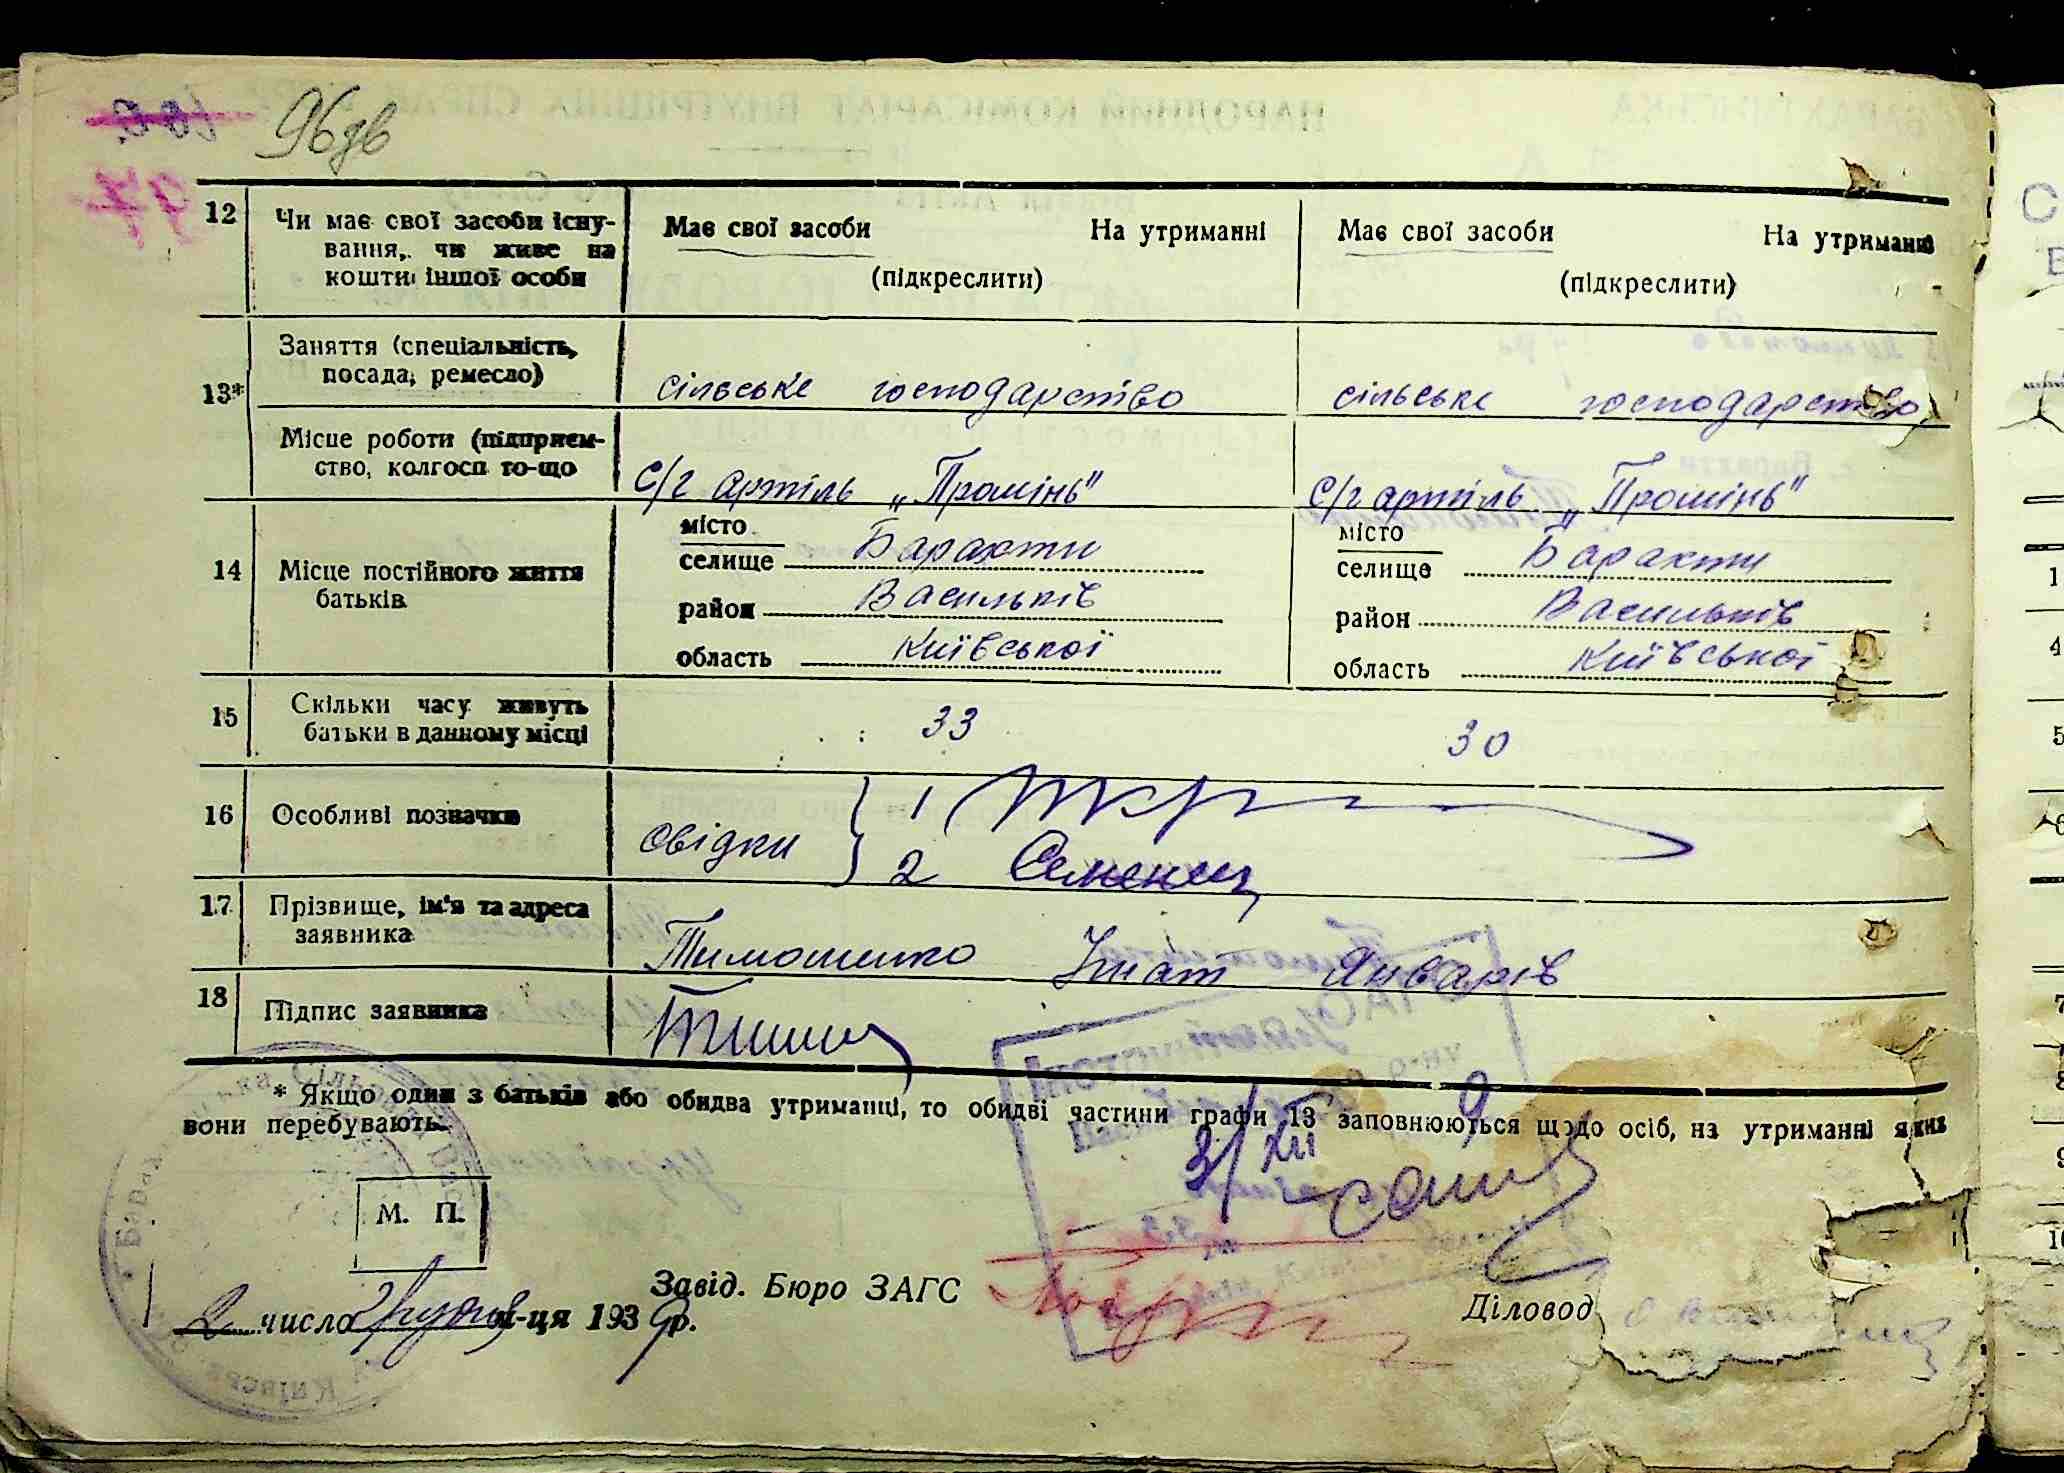 96 зв
97
12 Чи має свої засоби існу-
вання, чи живе на
кошти іншої особи
Має свої засоби На утриманні
(підкреслити)
Має свої засоби На утриманні
(підкреслити)
13*
Заняття (спеціальність,
посада, ремесло)
сільське господарство
сільське господарство
Місце роботи (підприєм-
ство, колгосп то-що
С/г артіль „Промінь"
С/г артіль „Промінь"
14 Місце постійного життя
батьків
місто
селище Барахти
район Васильків
область Київської
місто
селище Барахти
район Васильків
область Київської
15 Скільки часу живуть
батьки в данному місці
33
30
16 Особливі позначки
свідки
1
2
17 Прізвище, ім'я та адреса
заявника
Тимошенко Ігнат Январів
18 Підпис заявника
* Якщо один з батьків або обидва утриманці, то обидві частини графи 13 заповнюються щодо осіб, на утриманні яких
вони перебувають.
3/XII
М. П.
Завід. Бюро ЗАГС
Діловод
2 число грудня м-ця 1939 р.